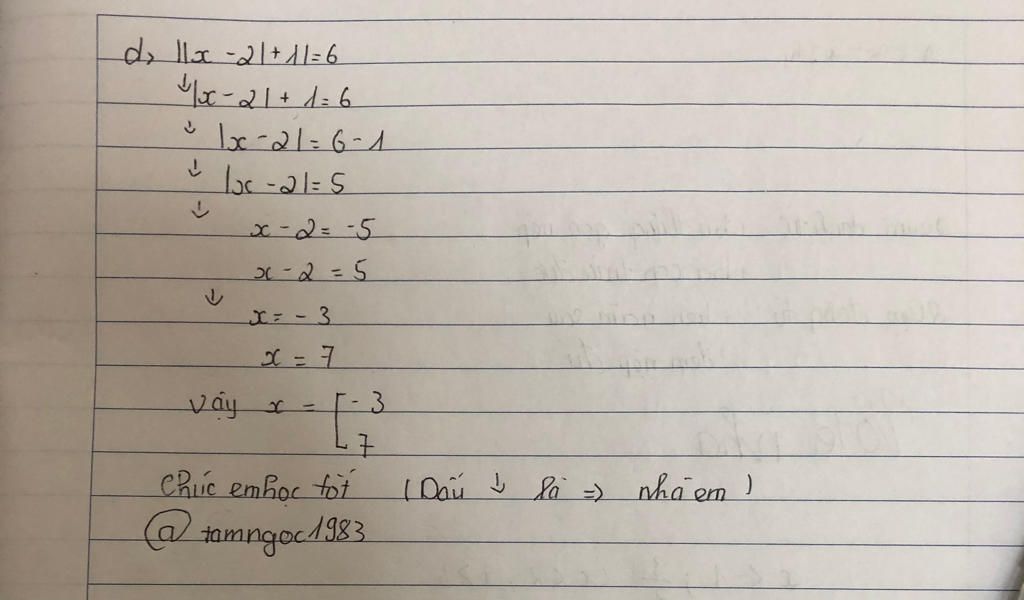 d, ||x - 2| + 1| = 6
↓ |x - 2| + 1 = 6
↓ |x - 2| = 6 - 1
↓ |x - 2| = 5
↓ x - 2 = -5
x - 2 = 5
↓ x = - 3
x = 7
Vậy x = [ - 3
7
Chúc em học tốt (Dấu ↓ là => nhá em)
@tamngoc1983